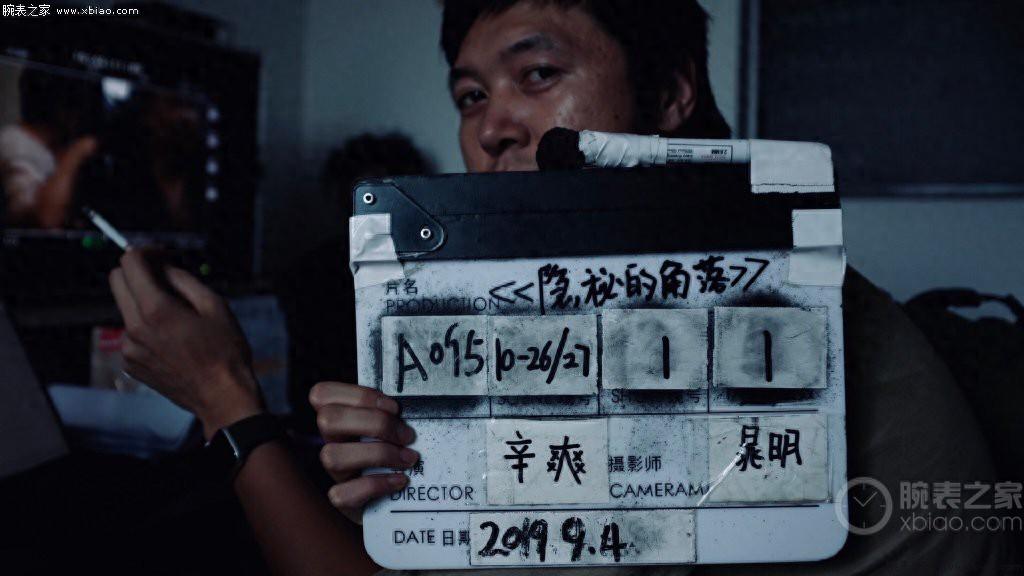 腕表之家 www.xbiao.com
<<隐秘的角落>>
片名
PRODUCTION
A095 10-26/27 1 1
辛爽 摄影师 晁明
DIRECTOR CAMERAM
DATE 日期 2019 9.4
腕表之家
xbiao.com